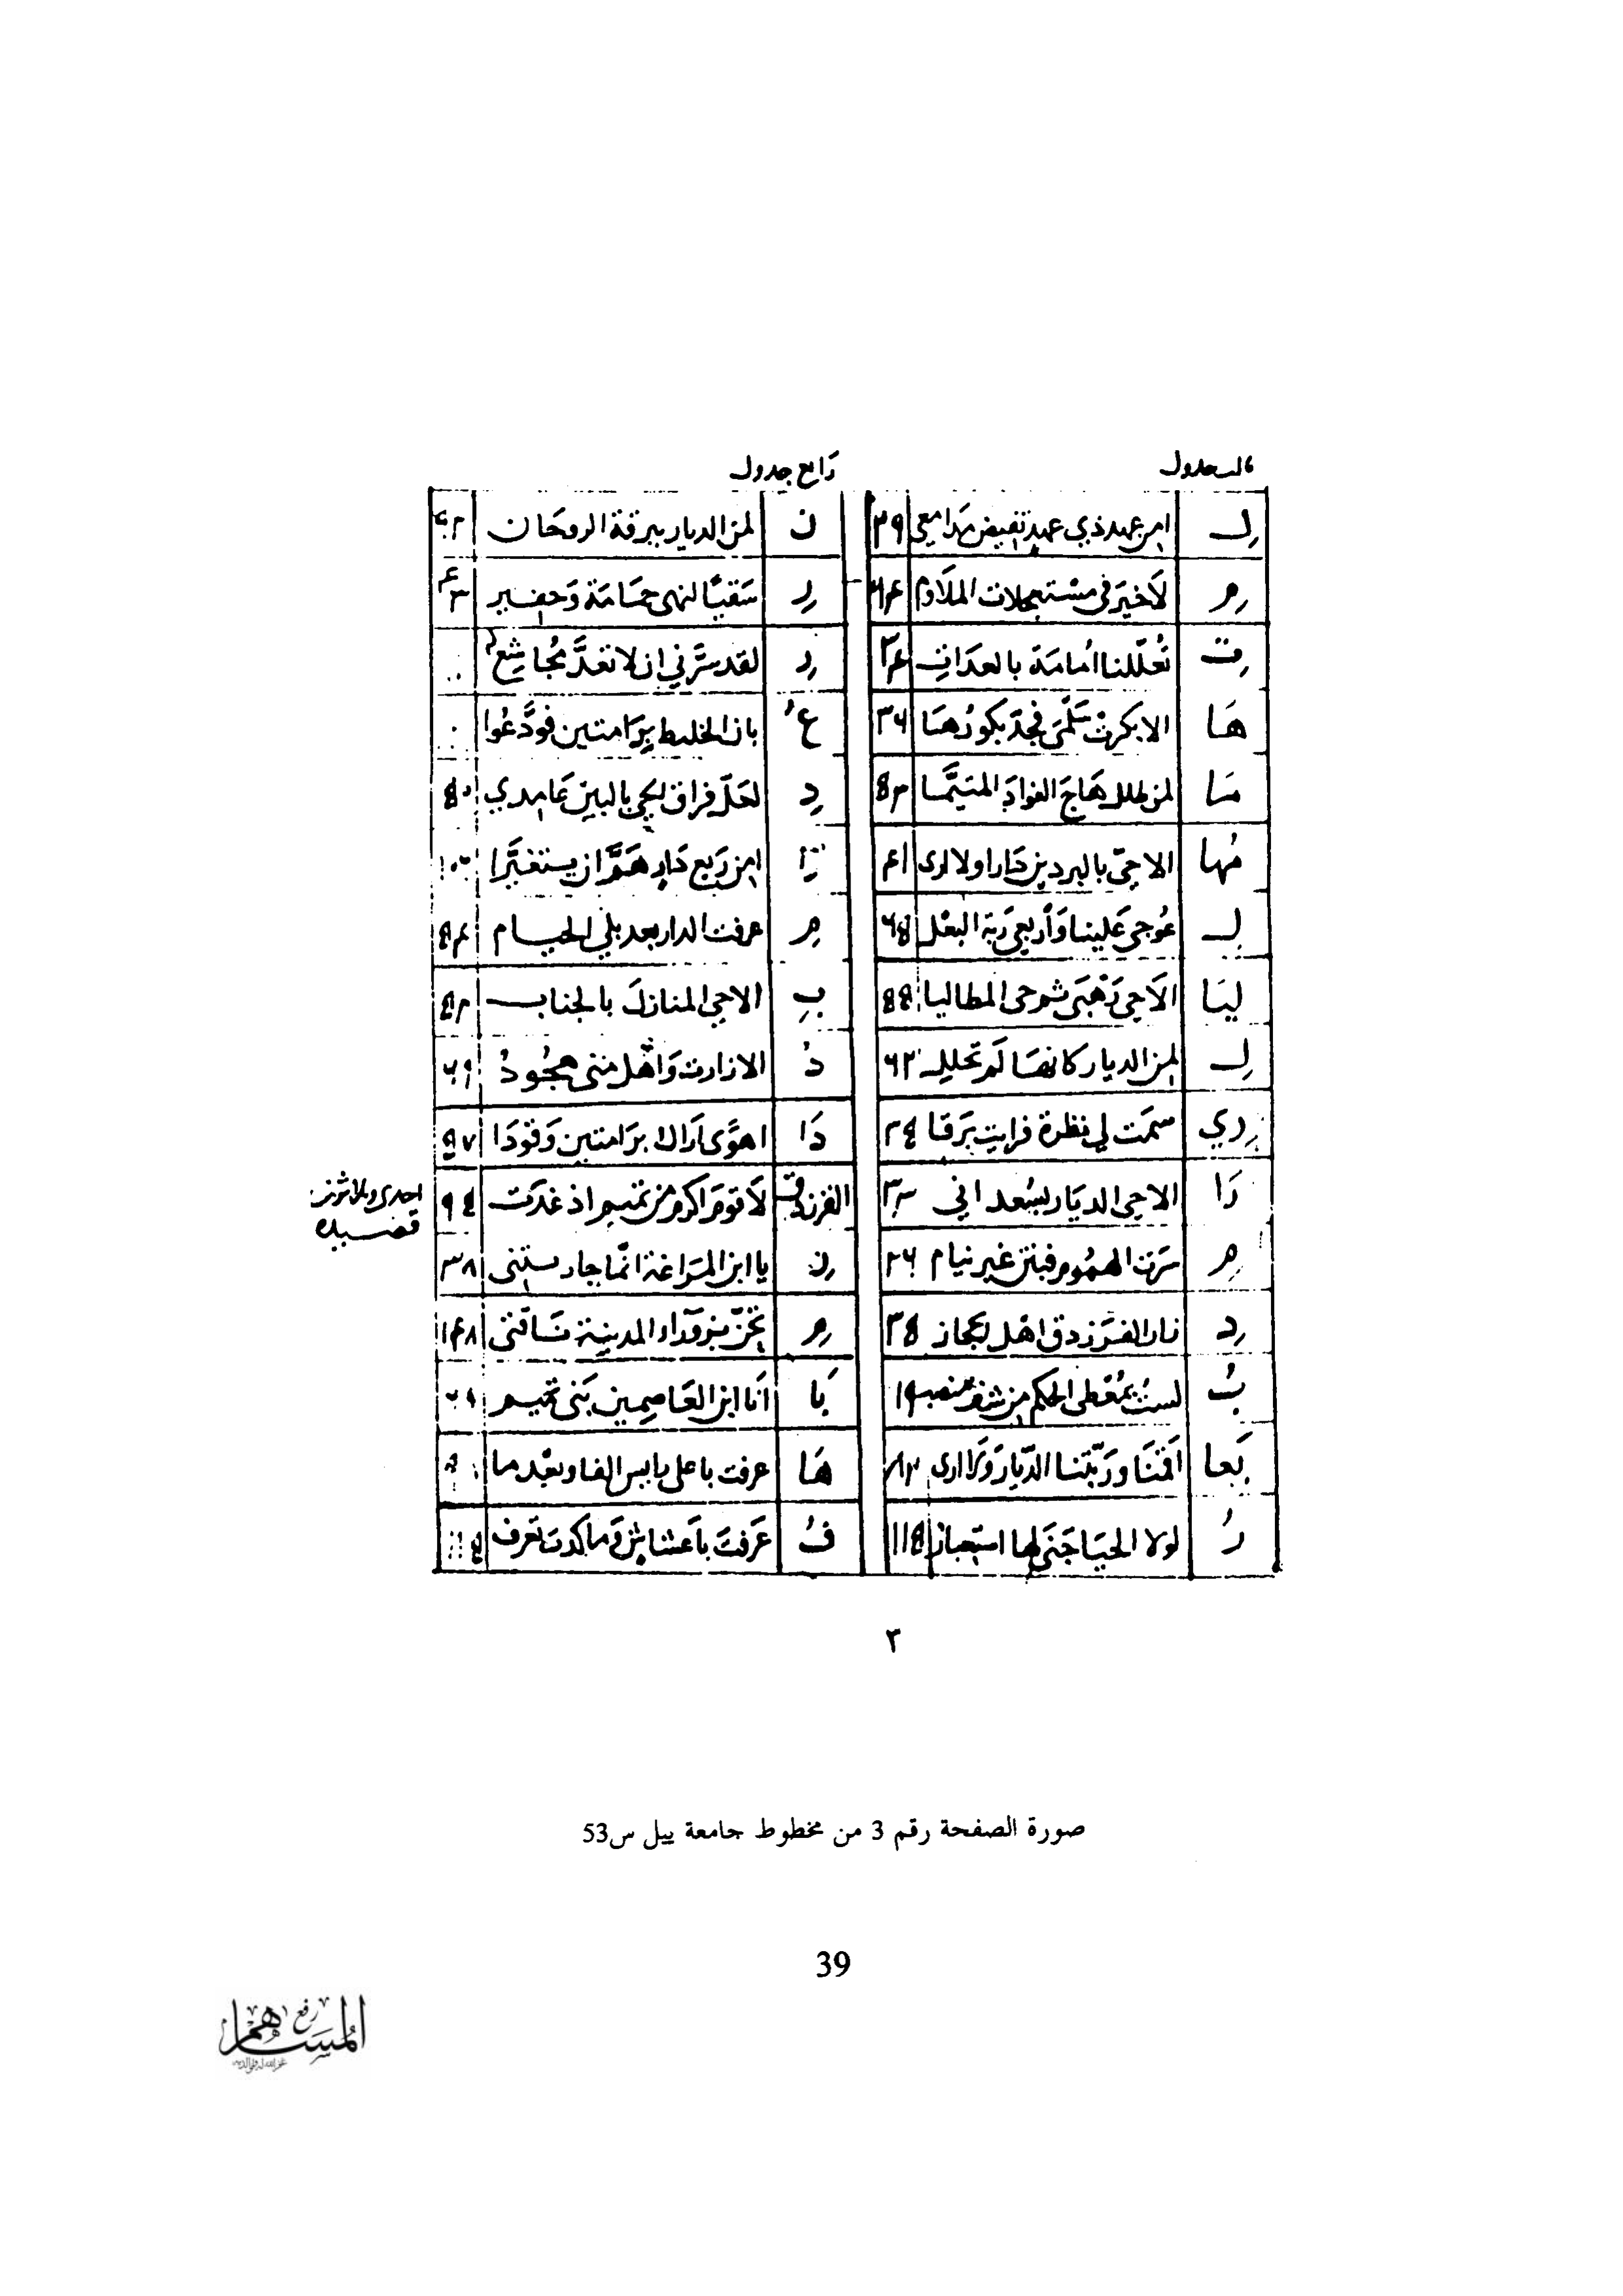 رابع جدول
لِ امن عهد ذي عهد تفيض مدامعي ٣٩
مِ لا خير في مستعجلات الملاوم
تِ تعللنا أمامة بالعدات
هَا الا بكرت سلمى فجد بكورها ٣٦
مَا لمن طلل هاج الفؤاد المتيما
مُها الا حي بالبردين دارا ولا ارى
لِ عوجي علينا واربعي ربة البغل
ليَا الا حي رهبى ثم حي المطاليا ٥٥
لِ لمن الديار كانها لم تحلل ٦٢
رِي سمت لي نظرة فرايت برقا ٢٤
دَا الا حي الديار بسعد اني
مِ سرت الهموم فبتن غير نيام ٢٦
دِ نار الفرزدق اهل الحجاز
بُ لست بمعطى الحكم من شف منصب
بَعا اقمنا وربتنا الديار ولا ارى
رُ لولا الحيا جنى لها استعبار ١١٥
ن لمن الديار ببرقة الروحان
رِ سَقيًا لنهى حمامة وحفير
رِ لقد سرني ان لا تعد مجاشع
عُ بان الخليط برامتين فودعوا
دِ لعل فراق الحي بالبين عامدي
رَا امن ربع دار هم ان يتغيرا
مِ عرفت الدار بعد بلى الخيام
بِ الا حي المنازل بالجناب
دُ الا زارت واهل منى هجود
دَا اهوى اراك برامتين وقودا ٥٧
الفرزدق لا قوم اكرم من تميم اذ غدت
نِ يا ابن المراغة انما جاريتني ٣٨
مِ تحن بزوراء المدينة ناقتي ١٤٨
بَا انا ابن العاصمين بني تميم
هَا عرفت باعلى رايس الفاو بعد ما
فُ عرفت باعشاش وما كدت تعرف
احدى وثلاثون
قصيده
٢
صورة الصفحة رقم 3 من مخطوط جامعة ييل س53
39
رفع المساهم
غفر الله له ولوالديه